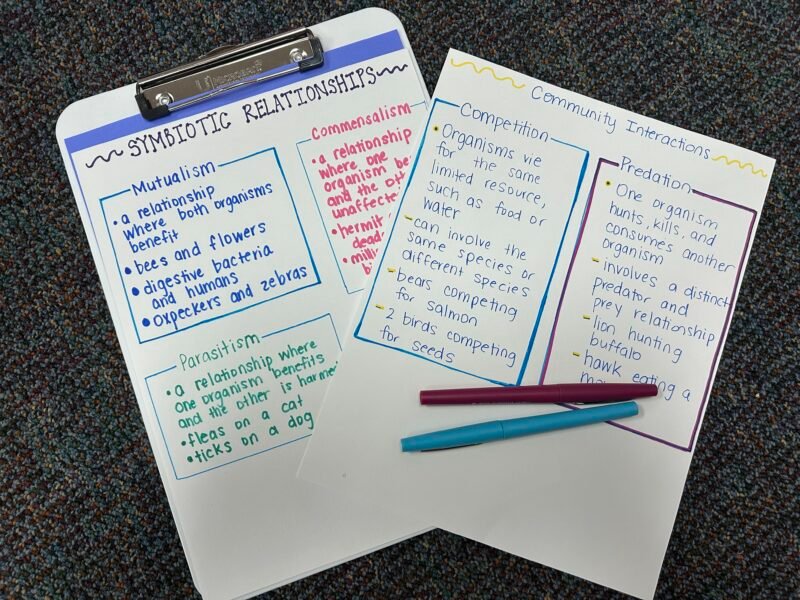 SYMBIOTIC RELATIONSHIPS
Mutualism
• a relationship
where both organisms
benefit
• bees and flowers
• digestive bacteria
and humans
• oxpeckers and zebras
Commensalism
• a relationship
where one
organism
and the
unaffected
• hermit
dead
Parasitism
• a relationship where
one organism benefits
and the other is harmed
• fleas on a cat
• ticks on a dog
Community Interactions
Competition
• Organisms vie
for the same
limited resource,
such as food or
water
- can involve the
same species or
different species
- bears competing
for salmon
- 2 birds competing
for seeds
Predation
• One organism
hunts, kills, and
consumes another
organism
- involves a distinct
predator and
prey relationship
- lion hunting
buffalo
- hawk eating a